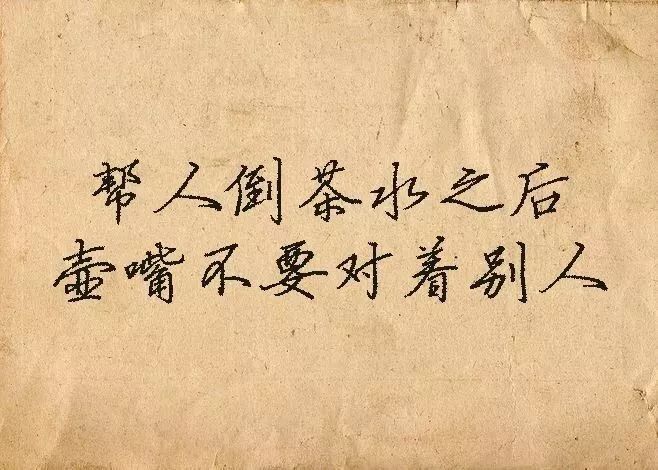 帮人倒茶水之后
壶嘴不要对着别人